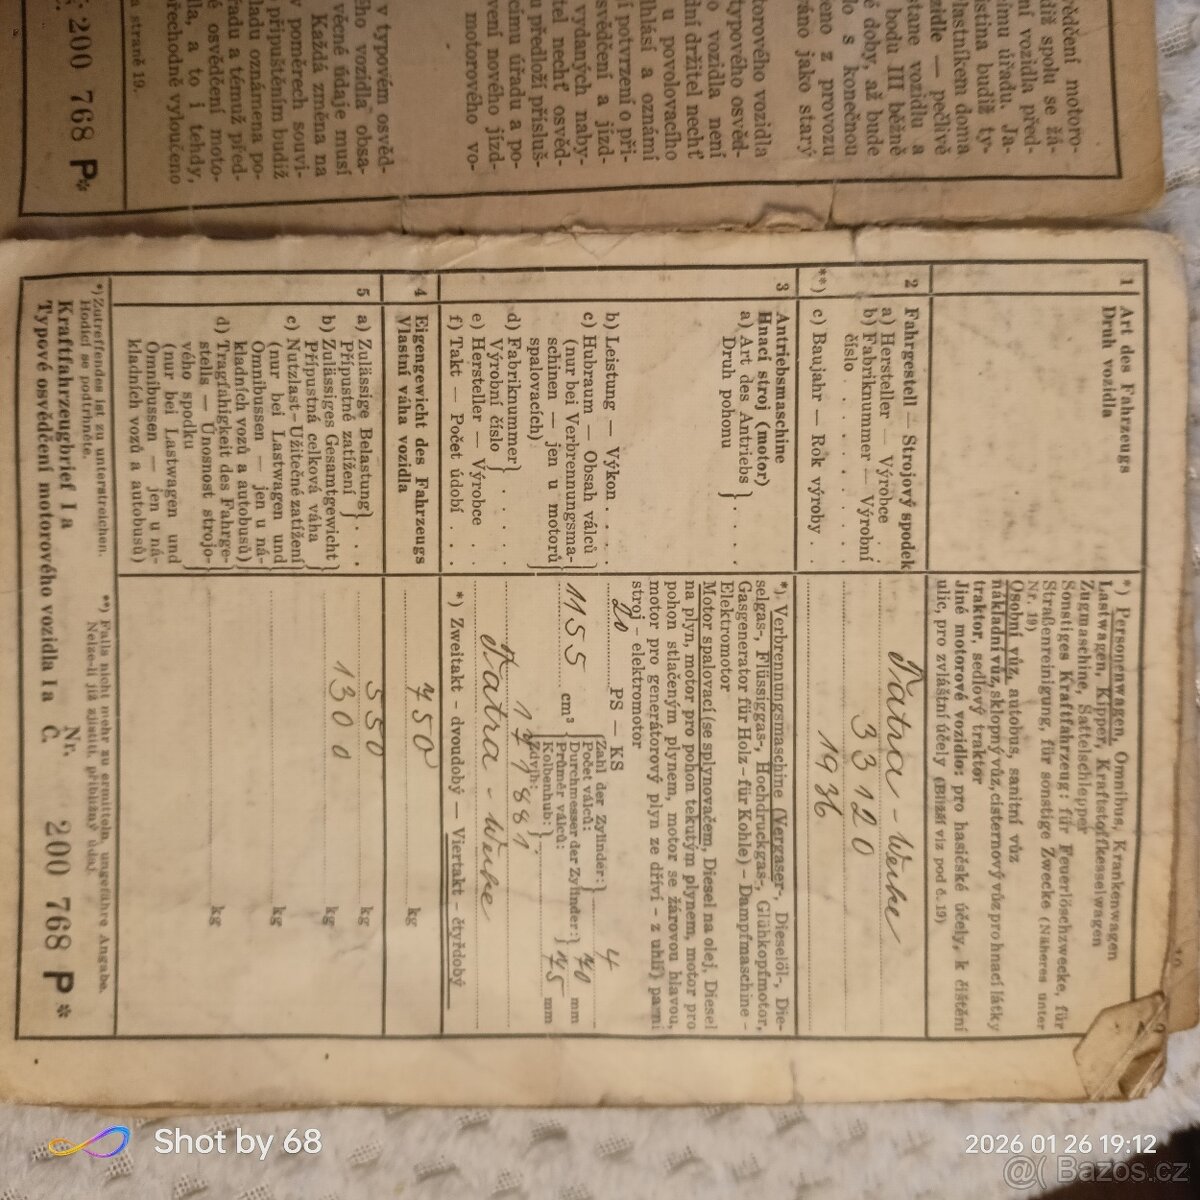 dění motoro-
diž spolu se žá-
ní vozidla před-
símu úřadu. Ja-
istina budiž ty-
lastníkem doma
zidle — pečlivě
stane vozidlu a
bodu III běžně
é doby, až bude
lo s konečnou
eno z provozu
áno jako starý
torového vozidla
typového osvěd-
o vozidla není
dní držitel nechť
u povolovacího
lhlásí a oznámí
í potvrzení o při-
svědčení a jízd-
vydaných naby-
tel nechť osvěd-
u předloží přísluš-
címu úřadu a po-
vení nového jízd-
motorového vo-
v typovém osvěd-
ého vozidla obsa-
věcné údaje musí
Každá změna na
v poměrech souvi-
připuštěním budiž
ladu oznámena po-
řadu a témuž před-
é osvědčení moto-
lla, a to i tehdy,
řechodně vyloučeno
a straně 19.
200 768 P*
1 Art des Fahrzeugs
Druh vozidla
*) Personenwagen, Omnibus, Krankenwagen
Lastwagen, Kipper, Kraftstoffkesselwagen
Zugmaschine, Sattelschlepper
Sonstiges Kraftfahrzeug: für Feuerlöschzwecke, für
Straßenreinigung, für sonstige Zwecke (Näheres unter
Nr. 19)
Osobní vůz, autobus, sanitní vůz
nákladní vůz, sklopný vůz, cisternový vůz pro hnací látky
traktor, sedlový traktor
Jiné motorové vozidlo: pro hasičské účely, k čištění
ulic, pro zvláštní účely (Bližší viz pod č. 19)
2 Fahrgestell — Strojový spodek
a) Hersteller — Výrobce Tatra - Werke
b) Fabriknummer — Výrobní
číslo 33120
**) c) Baujahr — Rok výroby 1936
3 Antriebsmaschine
Hnací stroj (motor)
a) Art des Antriebs
Druh pohonu
*) Verbrennungsmaschine (Vergaser-, Dieselöl-, Die-
selgas-, Flüssiggas-, Hochdruckgas-, Glühkopfmotor,
Gasgenerator für Holz - für Kohle) - Dampfmaschine -
Elektromotor
Motor spalovací (se splynovačem, Diesel na olej, Diesel
na plyn, motor pro pohon tekutým plynem, motor pro
pohon stlačeným plynem, motor se žárovou hlavou,
motor pro generátorový plyn ze dříví - z uhlí) parní
stroj - elektromotor
b) Leistung — Výkon 20 PS — KS
c) Hubraum — Obsah válců
(nur bei Verbrennungsma-
schinen — jen u motorů
spalovacích)
1155 cm³
Zahl der Zylinder:
Počet válců: 4
Durchmesser der Zylinder:
Průměr válců: 70 mm
Kolbenhub:
Zdvih: 75 mm
d) Fabriknummer
Výrobní číslo
e) Hersteller — Výrobce Tatra - Werke
f) Takt — Počet údobí *) Zweitakt - dvoudobý — Viertakt - čtyřdobý
4 Eigengewicht des Fahrzeugs
Vlastní váha vozidla 750 kg
5 a) Zulässige Belastung
Přípustné zatížení 550 kg
b) Zulässiges Gesamtgewicht
Přípustná celková váha 1300 kg
c) Nutzlast - Užitečné zatížení
(nur bei Lastwagen und
Omnibussen — jen u ná-
kladních vozů a autobusů) kg
d) Tragfähigkeit des Fahrge-
stells — Únosnost strojo-
vého spodku
(nur bei Lastwagen und
Omnibussen — jen u ná-
kladních vozů a autobusů) kg
*) Zutreffendes ist zu unterstreichen.
Hodící se podtrhněte.
**) Falls nicht mehr zu ermitteln, ungefähre Angabe.
Nelze-li již zjistiti, přibližný údaj.
Kraftfahrzeugbrief I a Nr.
Typové osvědčení motorového vozidla I a Č. 200 768 P*
Shot by 68
2026 01 26 19:12
@( Bazos.cz